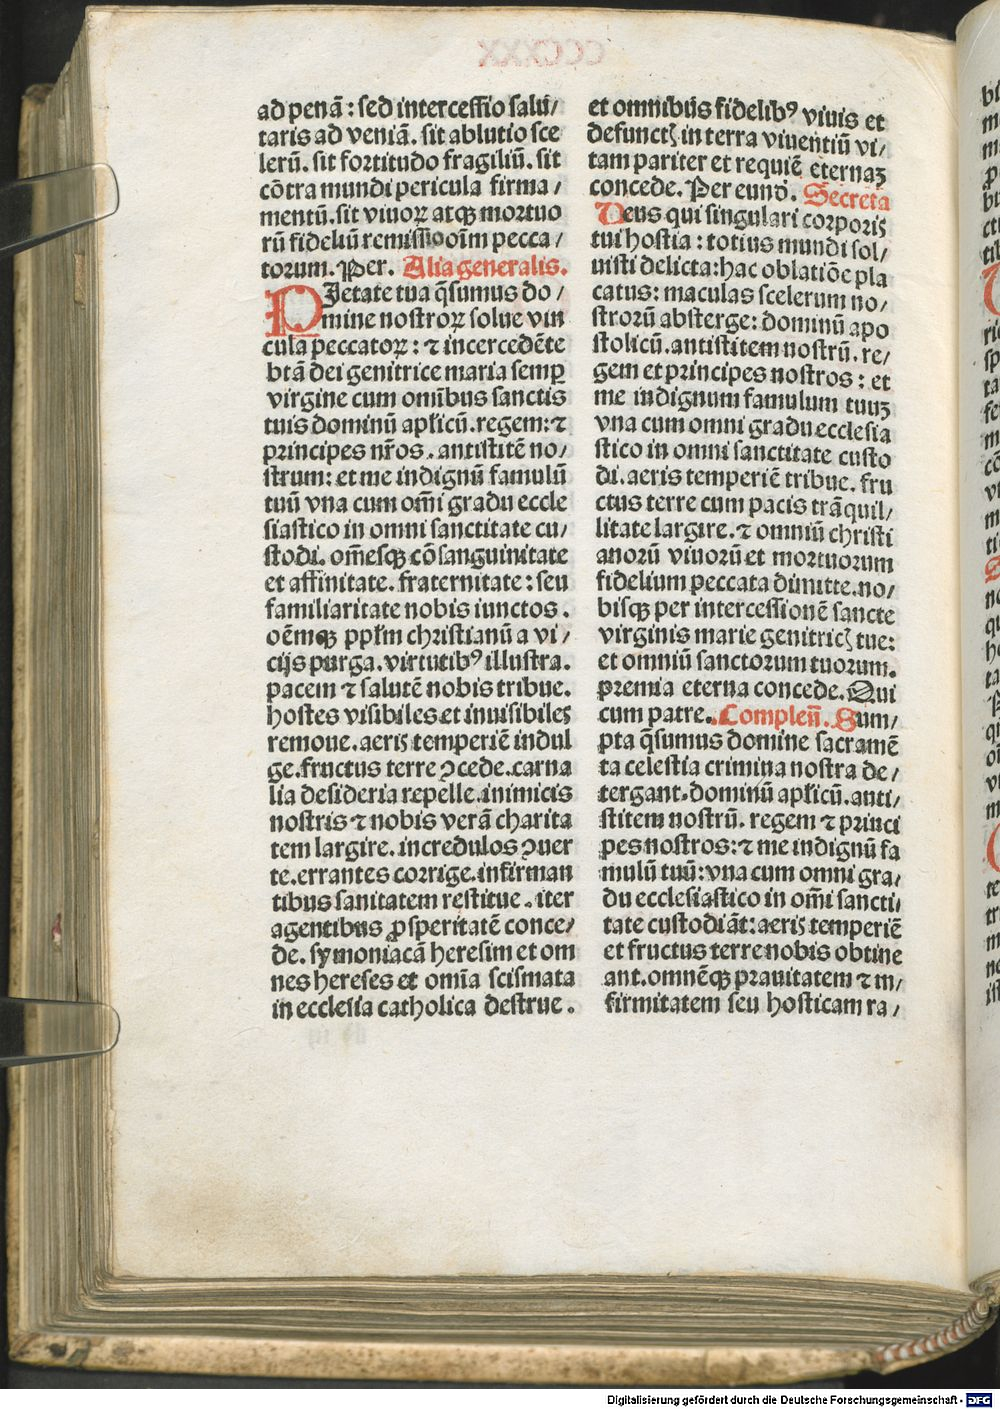 ad penã : sed intercessio salu/
taris ad veniã. sit ablutio sce
lerũ. sit fortitudo fragiliũ. sit
cõtra mundi pericula firma/
mentũ. sit viuoꝝ atqꝫ mortuo
rũ fideliũ remissio oĩm pecca/
torum. Per. Alia generalis.
PIetate tua q̃sumus do/
mine nostroꝝ solue vin
cula peccatoꝝ : ⁊ incercedẽte
btã dei genitrice maria semꝑ
virgine cum omĩbus sanctis
tuis dominũ aplicũ. regem: ⁊
principes nr̃os. antistitẽ no/
strum: et me indignũ famulũ
tuũ vna cum om̃i gradu eccle
siastico in omni sanctitate cu/
stodi. om̃esqꝫ cõsanguinitate
et affinitate. fraternitate: seu
familiaritate nobis iunctos.
oẽmqꝫ pplm christianũ a vi/
cijs purga. virtutibꝰ illustra.
pacem ⁊ salutẽ nobis tribue.
hostes visibiles et inuisibiles
remoue. aeris temperiẽ indul
ge. fructus terre ꝯcede. carna
lia desideria repelle. inimicis
nostris ⁊ nobis verã charita
tem largire. incredulos ꝯuer
te. errantes corrige. infirman
tibus sanitatem restitue. iter
agentibus ꝓsperitatẽ conce/
de. symoniacã heresim et om
nes hereses et omĩa scismata
in ecclesia catholica destrue.
et omnibus fidelibꝰ viuis et
defunctꝭ in terra viuentiũ vi/
tam pariter et requiẽ eternaꝫ
concede. Per eund. Secreta
Deus qui singulari corporis
tui hostia : totius mundi sol/
uisti delicta: hac oblatiõe pla
catus: maculas scelerum no/
strorũ absterge: dominũ apo
stolicũ. antistitem nostrũ. re/
gem et principes nostros : et
me indignum famulum tuuꝫ
vna cum omni gradu ecclesia
stico in omni sanctitate custo
di. aeris temperiẽ tribue. fru
ctus terre cum pacis trãquil/
litate largire. ⁊ omniũ christi
anorũ viuorũ et mortuorum
fidelium peccata dimitte. no/
bisqꝫ per intercessionẽ sancte
virginis marie genitricꝭ tue:
et omniũ sanctorum tuorum.
premia eterna concede. Qui
cum patre. Compleñ. Sum/
pta q̃sumus domine sacramẽ
ta celestia crimina nostra de/
tergant. dominũ aplicũ. anti/
stitem nostrũ. regem ⁊ princi
pes nostros: ⁊ me indignũ fa
mulũ tuũ: vna cum omni gra/
du ecclesiastico in om̃i sancti/
tate custodiãt: aeris temperiẽ
et fructus terre nobis obtine
ant. omnẽqꝫ prauitatem ⁊ in/
firmitatem seu hosticam ra/
Digitalisierung gefördert durch die Deutsche Forschungsgemeinschaft - DFG